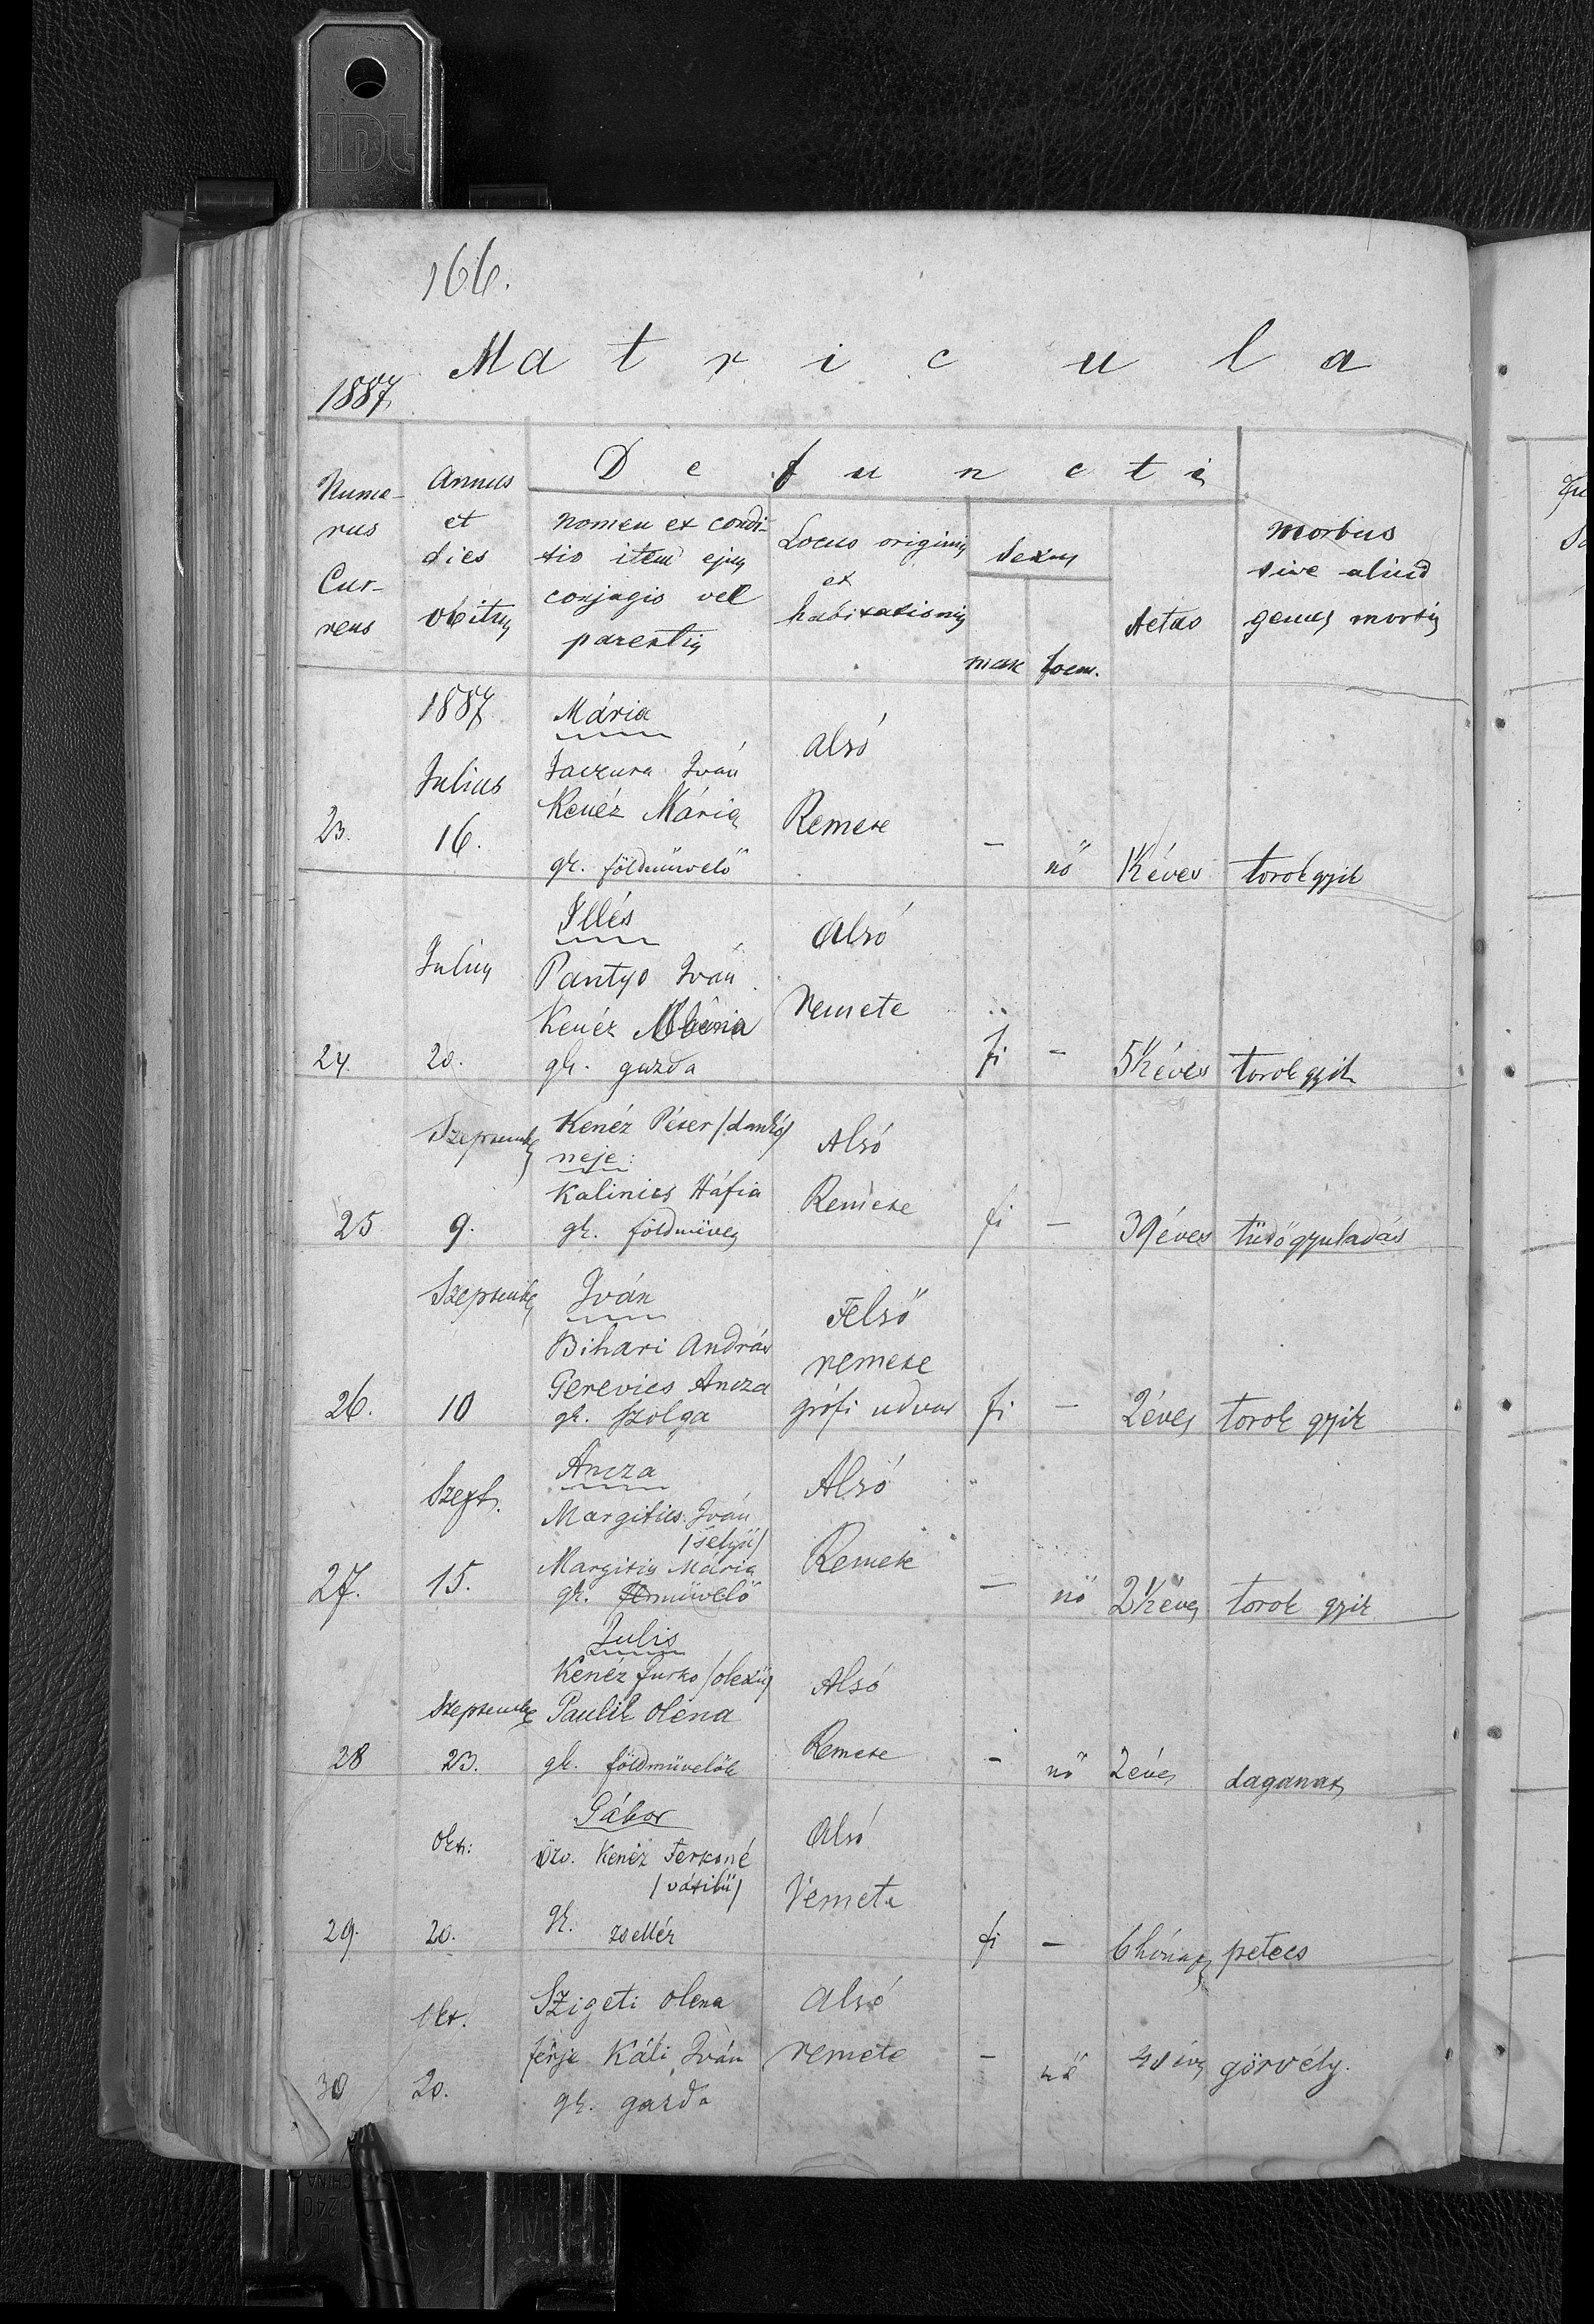 166.
Matricula
1887
Defuncti
Nume-
rus
Cur-
rens
Annus
et
dies
obitus
nomen et condi-
tio item ejus
conjugis vel
parentis
Locus originis
et
habitationis
Sexus
masc foem.
Aetas
morbus
sive aliud
genus mortis
1887
Julius
23. 16.
Mária
Jaczura Iván
Kenéz Mária
gk. földmüvelő
Alsó
Remete
– nő 1½ éves torokgyik
Julius
24. 20.
Illés
Pantyo Iván
Kenéz Mária
gk. gazda
Alsó
remete
fi – 5½ éves torokgyik
Szeptember
25 9.
Kenéz Péter /dankó/
neje:
Kalinics Háfia
gk. földmüves
Alsó
Remete
fi – 39 éves tüdőgyuladás
Szeptember
26. 10
Iván
Bihari András
Gerevics Ancza
gk. szolga
Felső
remete
grófi udvar
fi – 2 éves torok gyik
Szept.
27. 15.
Ancza
Margitics Iván
Margitics Mária
gk. müvelő
Alsó
Remete
– nő 2½ éves torok gyik
Szeptember
28 23.
Julis
Kenéz Jurko /olexü/
Paulik Olena
gk. földmüvelők
Alsó
Remete
– nő 2 éves daganat
Okt:
29. 20.
Gábor
özv. Kenéz Ferkóné
/vásilü/
gk. zsellér
Alsó
remete
fi – 6 hónap petecs
Okt.
30 20.
Szigeti Olena
férje Káli Iván
gk. gazda
Alsó
remete
– nő görvély.
IDL
CHINA